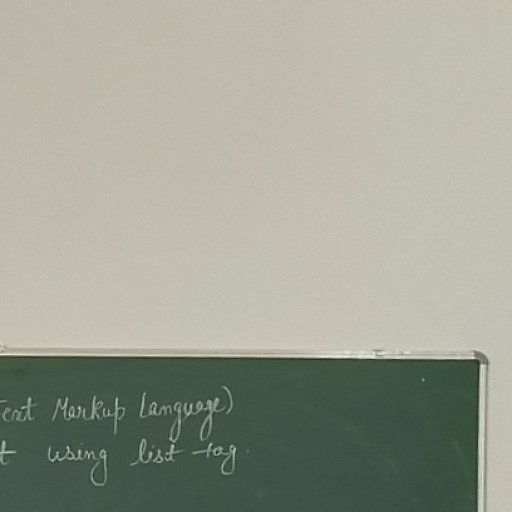 Text Markup Language)
using list tag